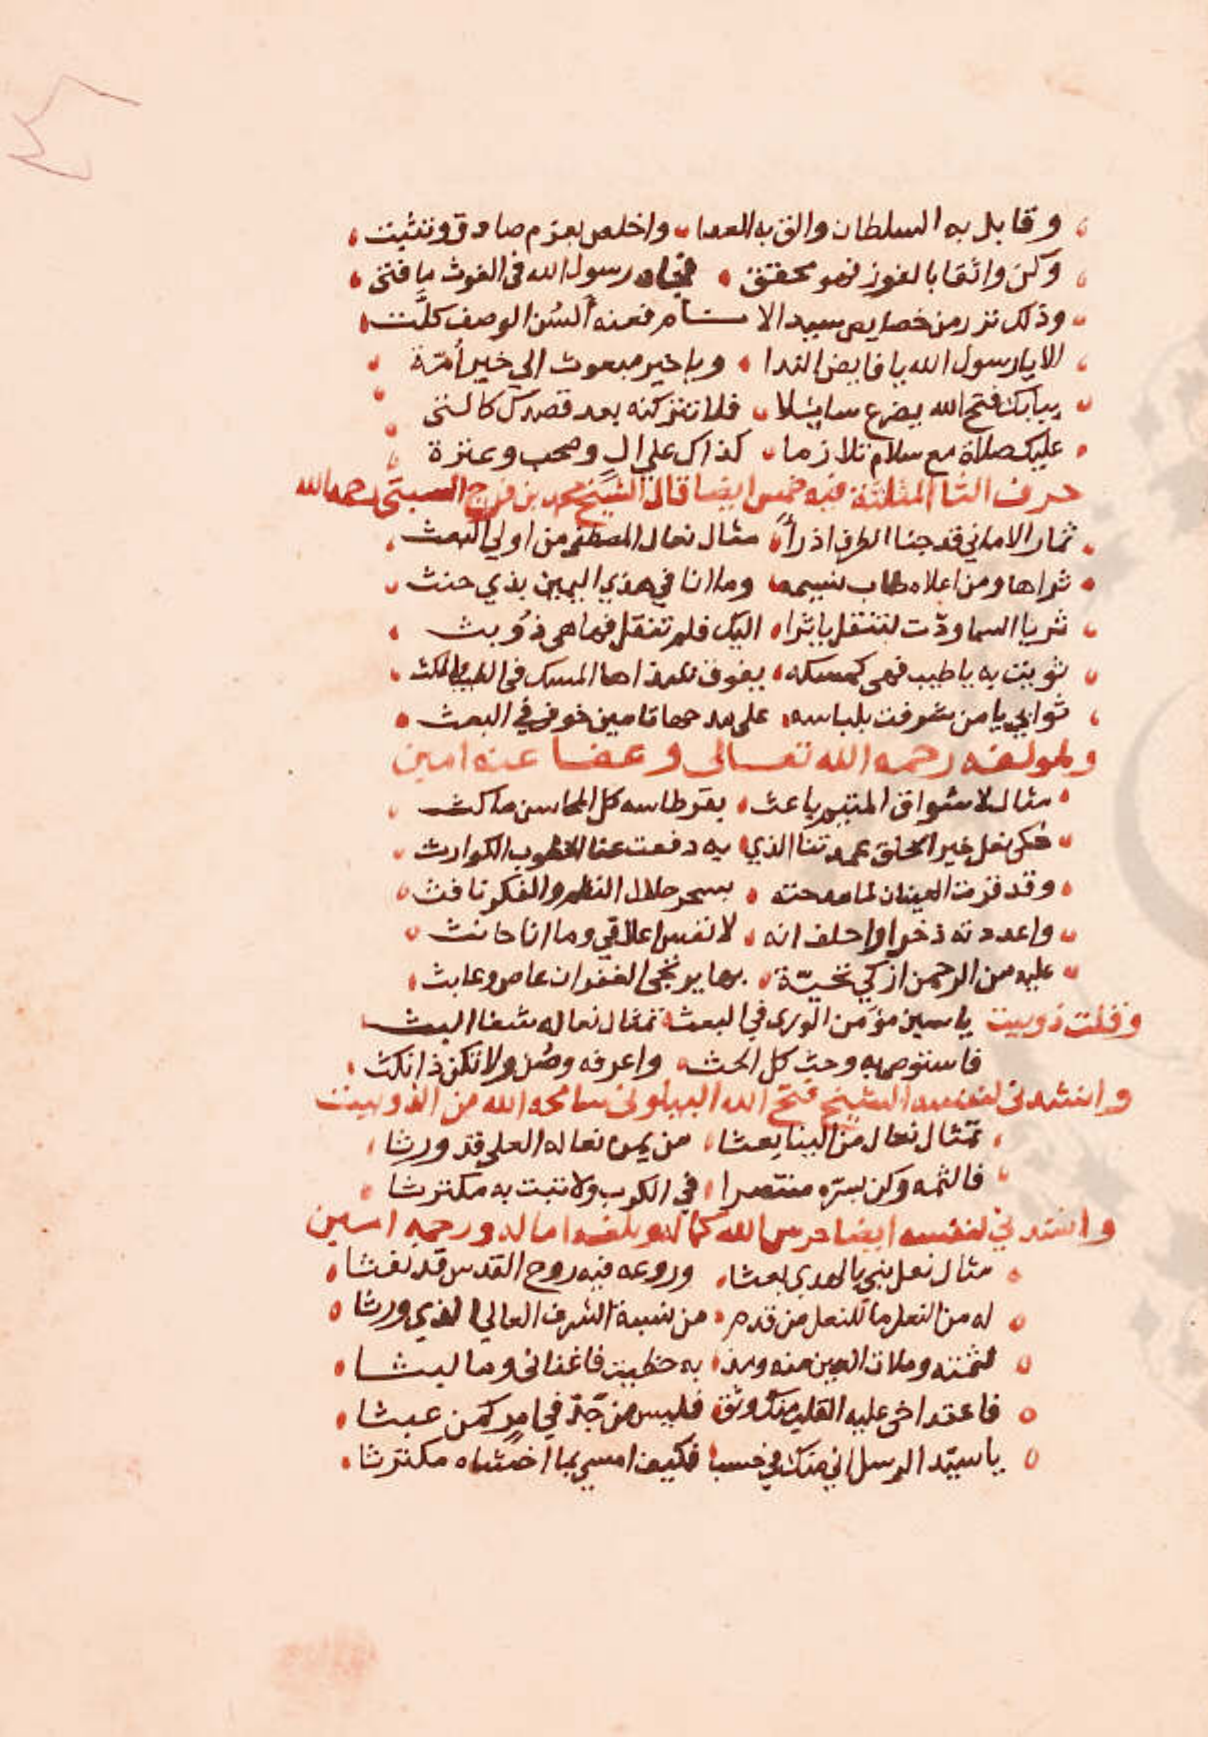 وقابل به السلطان والق به العدا واخلص بعزم صادق وتثبت
وكن واثقا بالفوز فهو محقق فجاه رسول الله في الغوث ما فتئ
وذلك نزر من خصايص سيد الانام فعنه ألسُن الوصف كلَّت
الا يا رسول الله يا فايض الندا ويا خير مبعوث الى خير أمّة
ببابك فتح الله يضرع سايلا فلا تتركنه بعد قصدك كالذي
عليك صلاة مع سلام تلازما كذاك على ال وصحب وعترة
حرف الثا المثلثة فيه خمس ايضا قال الشيخ محمد بن فرج السبتي رحمه الله
ثمار الاماني قد جنا الطرف اذ رأى مثال نعال المصطفى من اولي البعث
ثراها ومن اعلاه طاب نسيمه وما انا في هذي اليمين بذي حنث
ثريا السما ودّت لتنتقل يا ثرا اليك فلم تنقل فها هي ذو بث
ثويت به يا طيب فهي كمسكه يفوق شذاها المسك في الطيب والمكث
ثوابي يا من شرفت بلباسه على مدحها تامين خوفي في البعث
ولمولفه رحمه الله تعالى وعفا عنه امين
مثال لاشواق المتيم باعث بقرطاسه كل المحاسن ماكث
حكى نعل خير الخلق عمدتنا الذي به دفعت عنا الخطوب الكوارث
وقد قرت العينان لما مدحته بسحر حلال النظم والفكر نافث
واعددته ذخرا واحلف انه لانفس اعلاقي وما انا حانث
عليه من الرحمن ازكي تحيّة بها يرتجي الغفران عاص وعابث
وقلت ذوبيت يا سين مؤمن الورى في البعث تمثال نعاله شفا البث
فاستوص به وحث كل الحث واعرفه وصُن ولا تكن ذا نكث
وانشدني لنفسه الشيخ فتح الله البيلوني سامحه الله من الذوبيت
تمثال نعال من الينا بعثا من يمن نعاله العلى قد ورثا
فالثمه وكن بسرّه منتصرا في الكرب ولا تبت به مكترثا
وانشدني لنفسه ايضا حرس الله كماله وبلغه اماله ورحمه امين
مثال نعل نبي بالهدى بعثا وروعه فيه روح القدس قد نفثا
له من النعل ما للنعل من قدم من نسبة الشرف العالي الذي ورثا
لثمته وملات العين منه ومذ به حظيت فاغناني وما لبثا
فاعقد اخي عليه القلب منك وثق فليس من جدّ في امر كمن عبثا
يا سيّد الرسل اني منك في حسب فكيف امسي بما اخشاه مكترثا